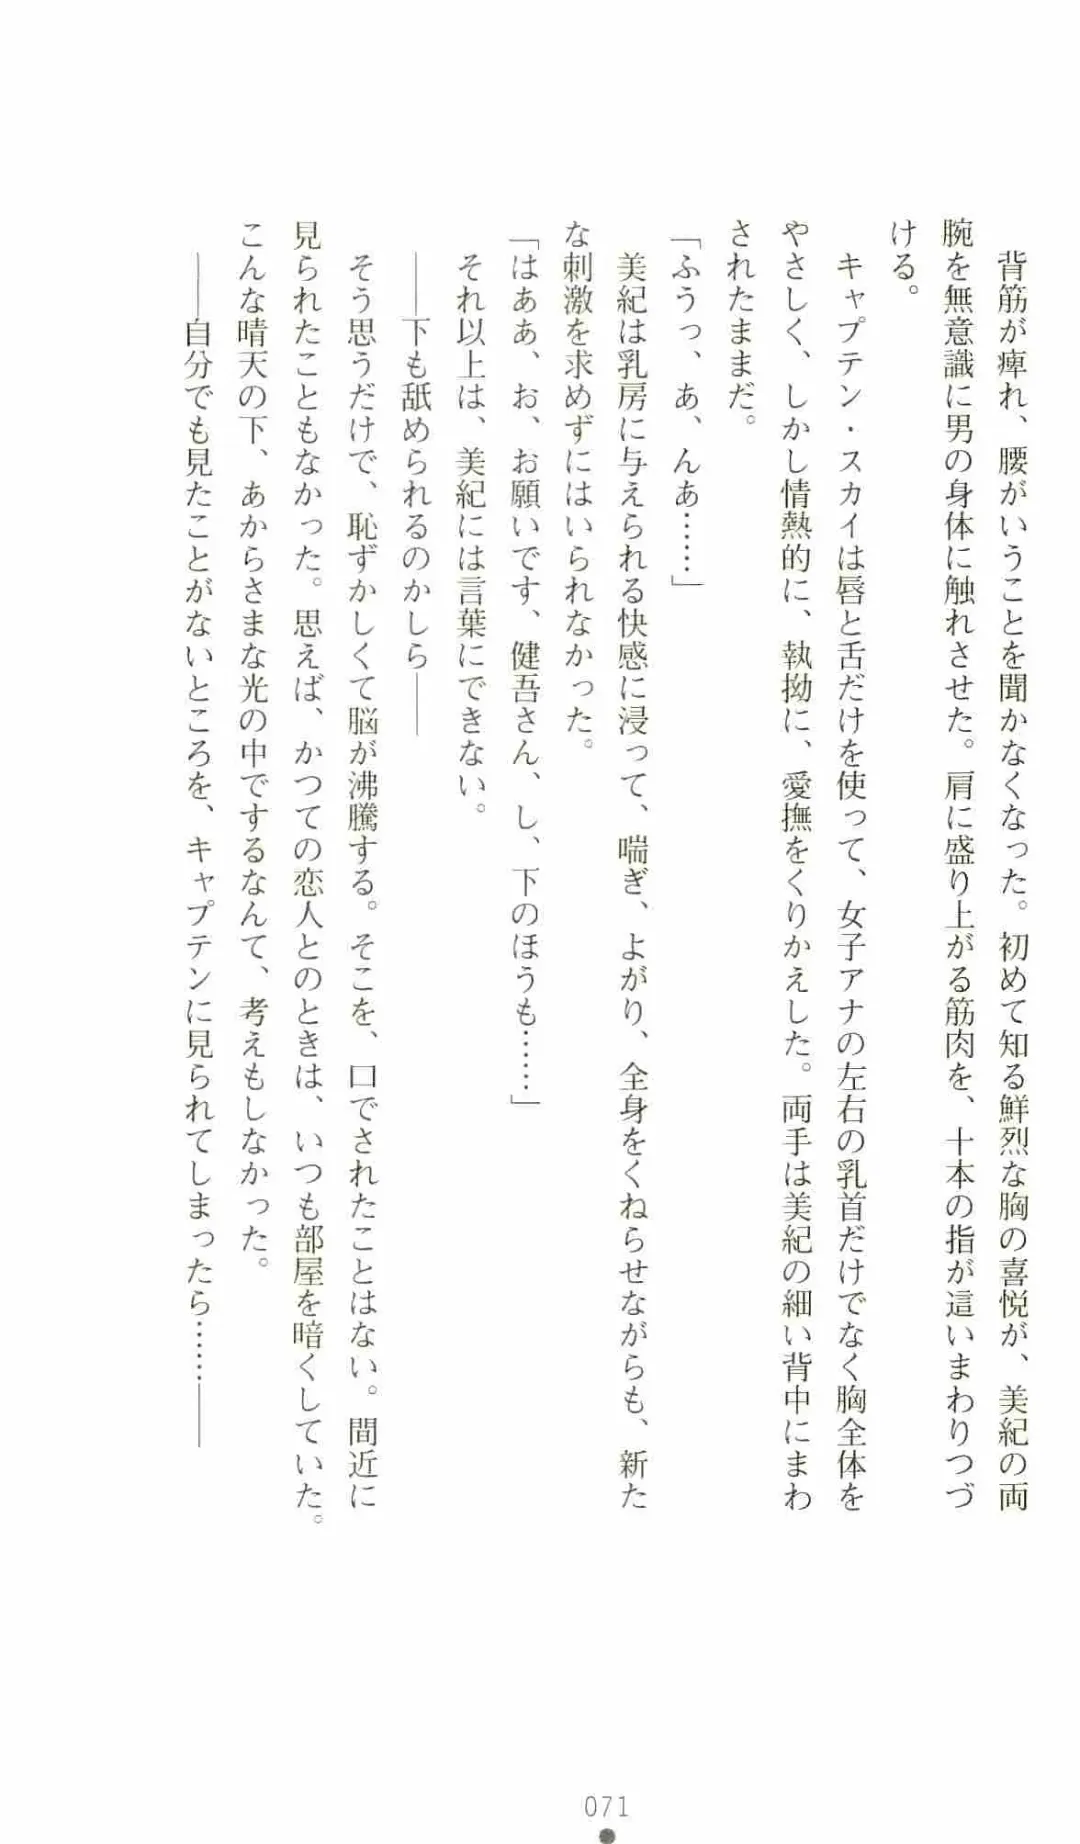 背筋が痺れ、腰がいうことを聞かなくなった。初めて知る鮮烈な胸の喜悦が、美紀の両
腕を無意識に男の身体に触れさせた。肩に盛り上がる筋肉を、十本の指が這いまわりつづ
ける。
キャプテン・スカイは唇と舌だけを使って、女子アナの左右の乳首だけでなく胸全体を
やさしく、しかし情熱的に、執拗に、愛撫をくりかえした。両手は美紀の細い背中にまわ
されたままだ。
「ふうっ、あ、んあ……」
美紀は乳房に与えられる快感に浸って、喘ぎ、よがり、全身をくねらせながらも、新た
な刺激を求めずにはいられなかった。
「はぁぁ、お、お願いです、健吾さん、し、下のほうも……」
それ以上は、美紀には言葉にできない。
――下も舐められるのかしら――
そう思うだけで、恥ずかしくて脳が沸騰する。そこを、口でされたことはない。間近に
見られたこともなかった。思えば、かつての恋人とのときは、いつも部屋を暗くしていた。
こんな晴天の下、あからさまな光の中でするなんて、考えもしなかった。
――自分でも見たことがないところを、キャプテンに見られてしまったら……――
071